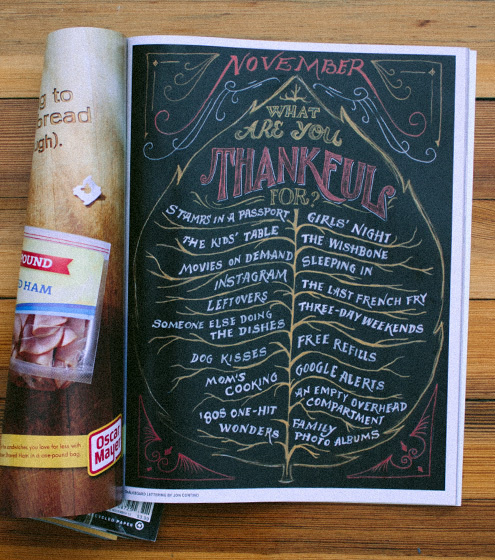 NOVEMBER
WHAT
ARE YOU
THANKFUL
FOR?
STAMPS IN A PASSPORT
THE KIDS' TABLE
MOVIES ON DEMAND
INSTAGRAM
LEFTOVERS
SOMEONE ELSE DOING
THE DISHES
DOG KISSES
MOM'S
COOKING
'80S ONE-HIT
WONDERS
GIRLS' NIGHT
THE WISHBONE
SLEEPING IN
THE LAST FRENCH FRY
THREE-DAY WEEKENDS
FREE REFILLS
GOOGLE ALERTS
AN EMPTY OVERHEAD
COMPARTMENT
FAMILY
PHOTO ALBUMS
LETTERING BY JON CONTINO
g to
oread
gh).
OUND
D HAM
sandwiches you love for less with
Ham in a one-pound bag.
Oscar
Mayer
CYCLED PAPER